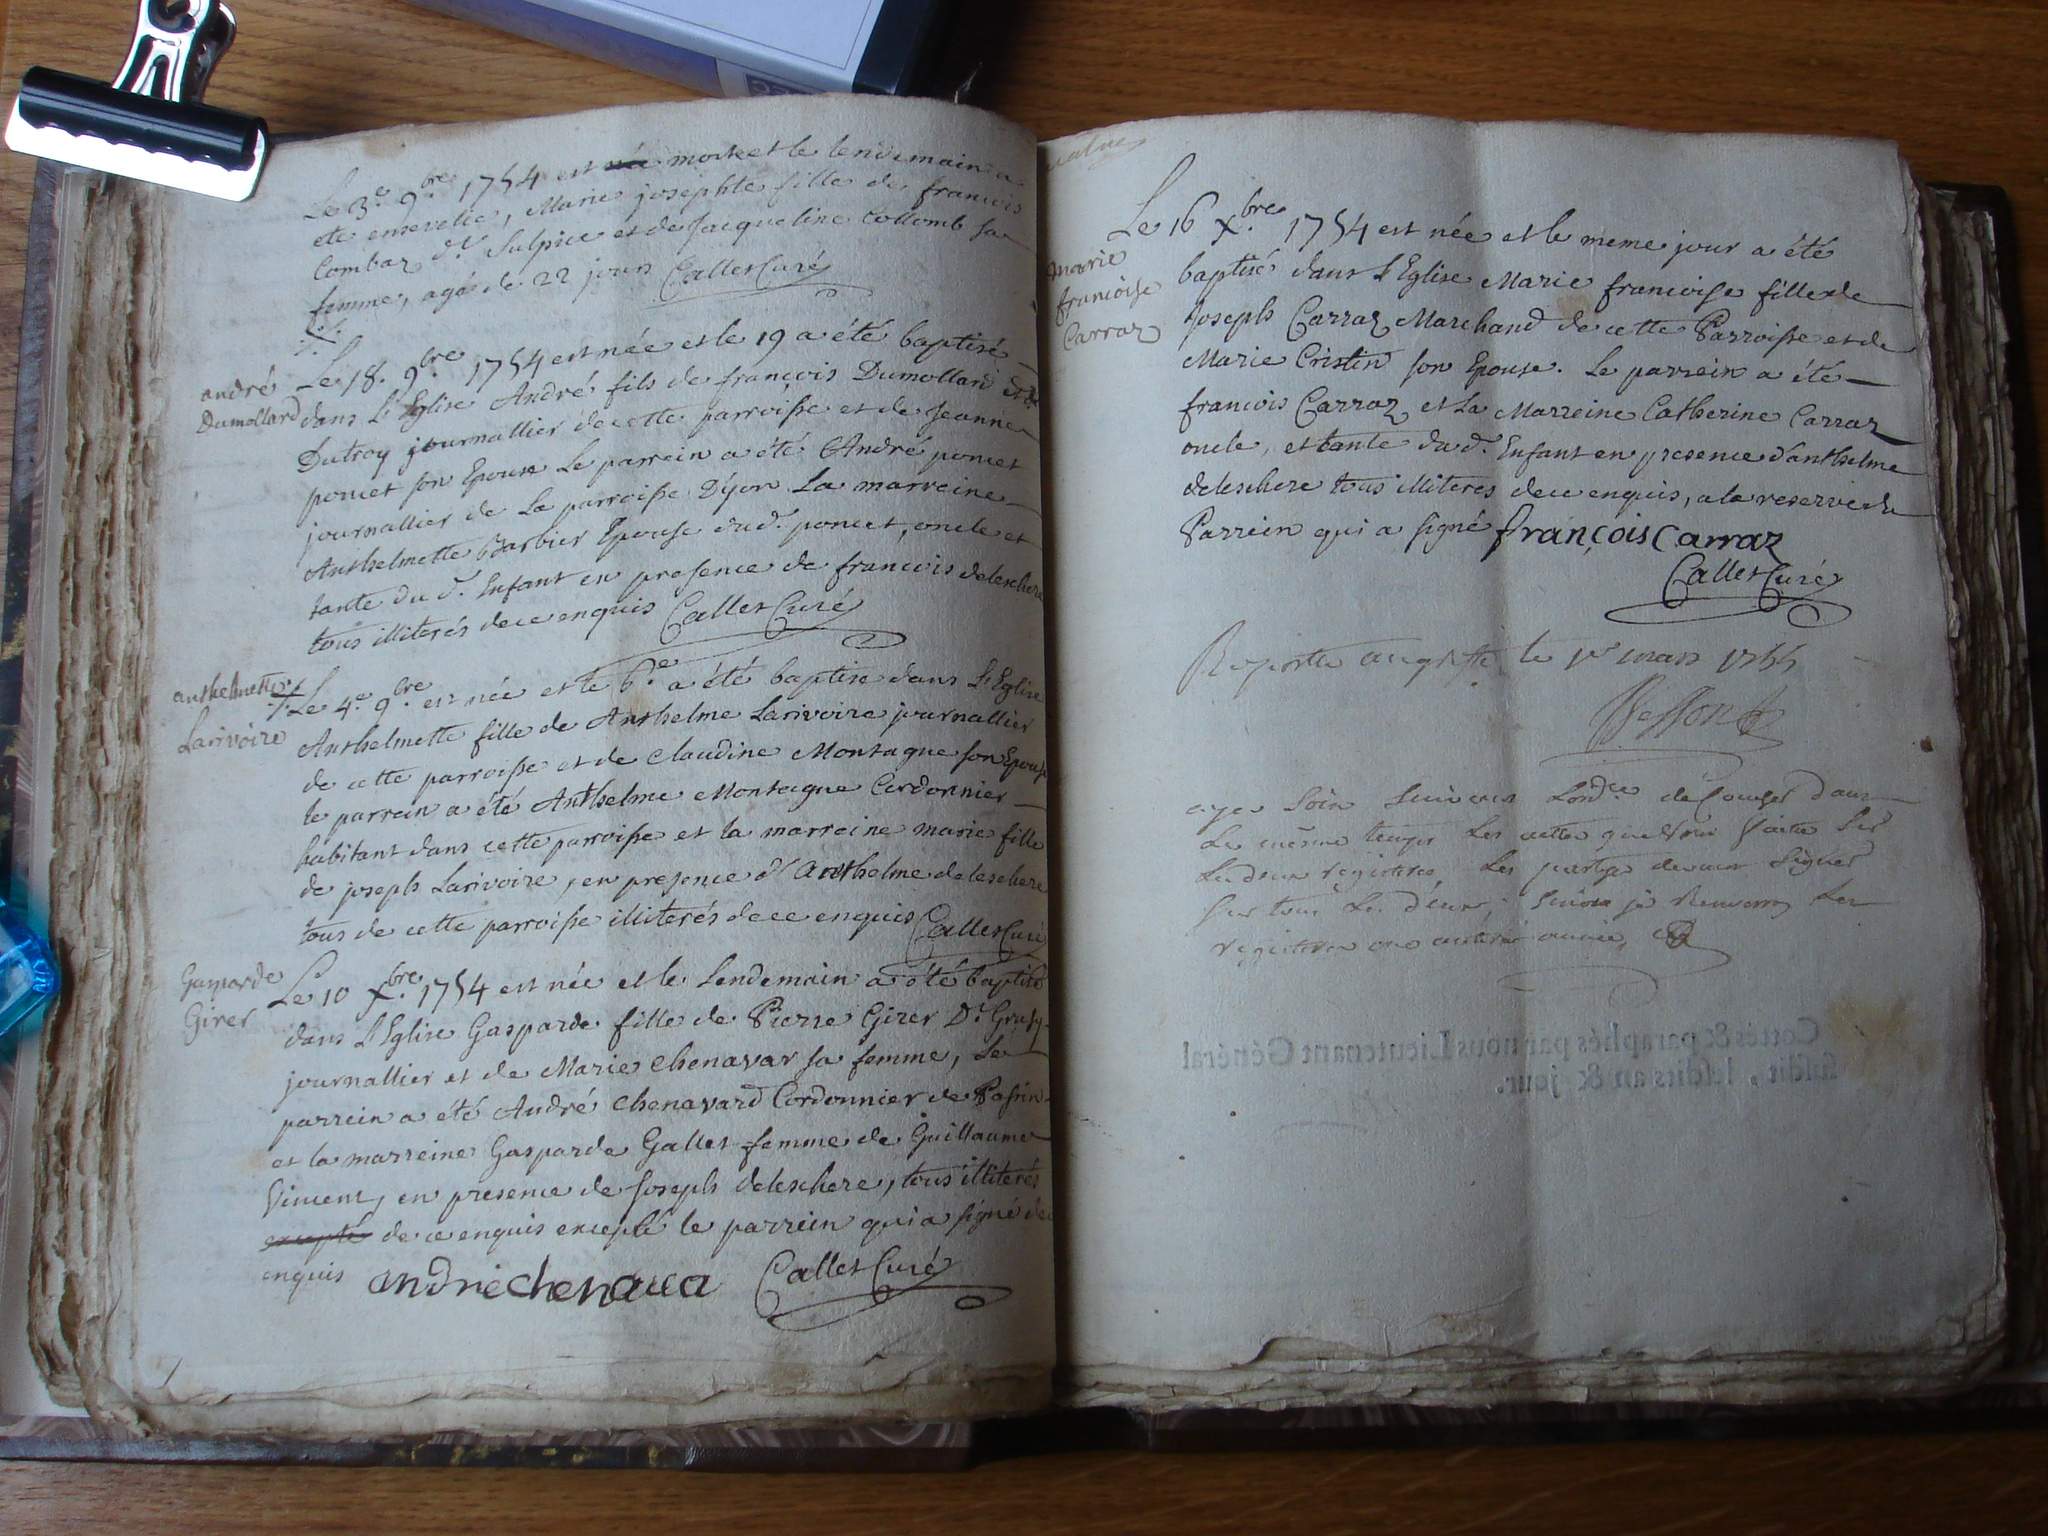 Le 3.e 9.bre 1754 est née morte et le lendemain a
eté ensevelie, Marie josephte fille de francois
Combaz d.t Sulpice et de Jacqueline Collomb sa
femme, agée de 22 jours Callet Curé
andré
Dumollard
Le 18. 9.bre 1754 est née et le 19 a été baptisé
dans L'Eglise André fils de françois Dumollard et de
Dutroy journallier de cette parroisse et de Jeanne
poncet son Epouse Le parrein a été André poncet
journallier de La parroisse D'yon La marreine
Anthelmette Barbier Epouse dud.t poncet, oncle et
tante du d.t Enfant en presence de francois deleschere
tous illiterés de ce enquis Callet Curé
anthelmette
Larivoire
Le 4.e 9.bre est née et le 6.e a été baptisé dans L'Eglise
Anthelmette fille de Anthelme Larivoire journallier
de cette parroisse et de Claudine Montagne son Epouse
le parrein a été Anthelme Montagne Cordonnier
habitant dans cette parroisse et la marreine marie fille
de joseph Larivoire, en presence d'Anthelme deleschere
tous de cette parroisse illiterés de ce enquis Callet Curé
Gasparde
Girer
Le 10 X.bre 1754 est née et le Lendemain a été baptisé
dans L'Eglise Gasparde fille de Pierre Girer D.t Grusy
journallier et de Marie Chenavar sa femme, Le
parrein a été André Chenavard Cordonnier de Passin
et la marreine Gasparde Gallet femme de Guillaume
Vincent, en presence de Joseph deleschere, tous illiterés
excepté de ce enquis excepté le parrein qui a signé de
enquis andrie chenaua Callet Curé
marie
francoise
Carraz
Le 16 X.bre 1754 est née et le meme jour a été
baptisé dans L'Eglise Marie francoise fille de
Joseph Carraz Marchand de cette Parroisse et de
Marie Cristin son Epouse. Le parrein a été
francois Carraz et La Marreine Catherine Carraz
oncle, et tante du d.t Enfant en presence d'anthelme
deleschere tous illiteres de ce enquis, a la reserve du
Parrein qui a signé françois Carraz
Callet Curé
le 1er mars 1755
aye soin dans
le même temps Les actes
Les deux registres, Les devant Signer
sur tous Les deux; je
registres
Cottés & paraphés par nous Lieutenant Général
susdit, lesdits an & jour.